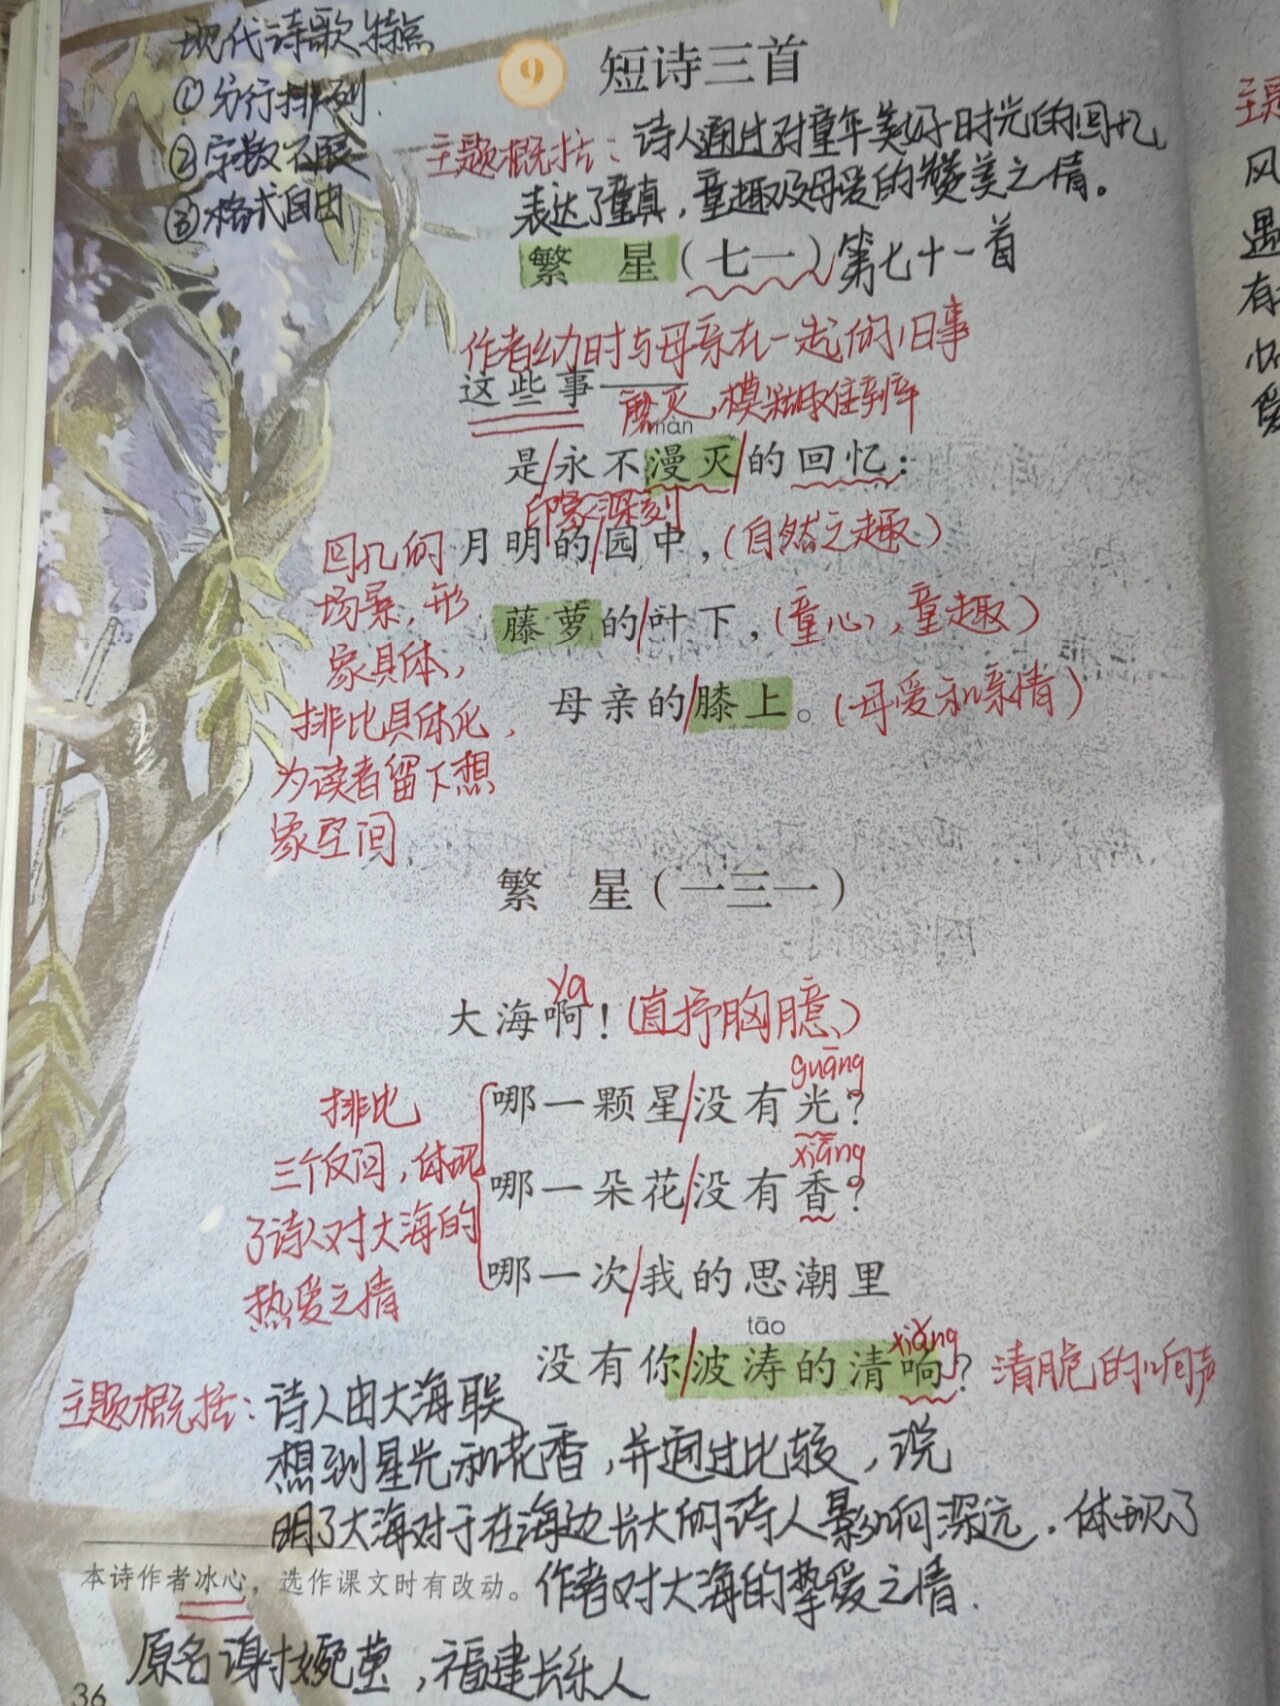 现代诗歌特点
①分行排列.
②字数不限
③格式自由
9 短诗三首
主题概括：诗人通过对童年美好时光的回忆，
表达了童真，童趣及母爱的赞美之情。
繁 星（七一）第七十一首
作者幼时与母亲在一起的旧事
这些事——
磨灭，模糊
màn
是永不漫灭的回忆：
印象深刻
月明的园中，（自然之趣）
藤萝的叶下，（童心，童趣）
母亲的膝上。（母爱和亲情）
回忆的
场景，形
象具体，
排比具体化，
为读者留下想
象空间
繁 星（一三一）
ya
大海啊！（直抒胸臆）
guāng
哪一颗星没有光？
xiāng
哪一朵花没有香？
哪一次我的思潮里
tāo xiǎng
没有你波涛的清响？清脆的响声
排比
三个反问，体现
了诗人对大海的
热爱之情
主题概括：诗人由大海联
想到星光和花香，并通过比较，说
明了大海对于在海边长大的诗人影响深远。体现了
作者对大海的挚爱之情.
本诗作者冰心，选作课文时有改动。
原名谢婉莹，福建长乐人
36
主
风
遇
有
怀
爱